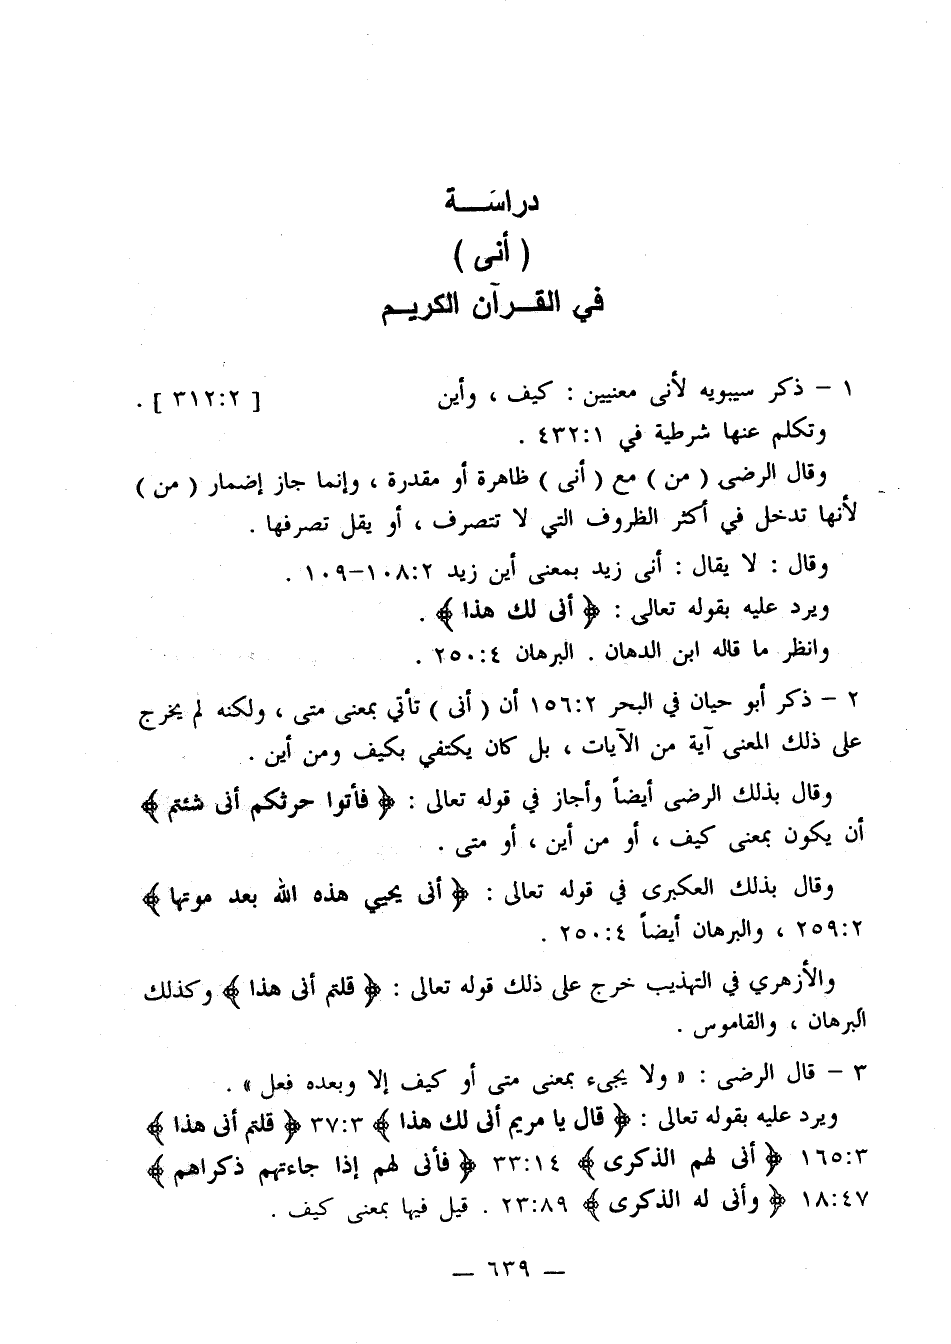 دراسَـــة
( أنى )
في القـــرآن الكريـــم
١ – ذكر سيبويه لأنى معنيين : كيف ، وأين [ ٣١٢:٢ ] .
وتكلم عنها شرطية في ٤٣٢:١ .
وقال الرضى ( من ) مع ( أنى ) ظاهرة أو مقدرة ، وإنما جاز إضمار ( من )
لأنها تدخل في أكثر الظروف التي لا تتصرف ، أو يقل تصرفها .
وقال : لا يقال : أنى زيد بمعنى أين زيد ١٠٨:٢–١٠٩ .
ويرد عليه بقوله تعالى : ﴿ أنى لك هذا ﴾ .
وانظر ما قاله ابن الدهان . البرهان ٢٥٠:٤ .
٢ – ذكر أبو حيان في البحر ١٥٦:٢ أن ( أنى ) تأتي بمعنى متى ، ولكنه لم يخرج
على ذلك المعنى آية من الآيات ، بل كان يكتفي بكيف ومن أين .
وقال بذلك الرضى أيضاً وأجاز في قوله تعالى : ﴿ فأتوا حرثكم أنى شئتم ﴾
أن يكون بمعنى كيف ، أو من أين ، أو متى .
وقال بذلك العكبرى في قوله تعالى : ﴿ أنى يحيي هذه الله بعد موتها ﴾
٢٥٩:٢ ، والبرهان أيضاً ٢٥٠:٤ .
والأزهري في التهذيب خرج على ذلك قوله تعالى : ﴿ قلتم أنى هذا ﴾ وكذلك
البرهان ، والقاموس .
٣ – قال الرضى : « ولا يجىء بمعنى متى أو كيف إلا وبعده فعل » .
ويرد عليه بقوله تعالى : ﴿ قال يا مريم أنى لك هذا ﴾ ٣٧:٣ ﴿ قلتم أنى هذا ﴾
١٦٥:٣ ﴿ أنى لهم الذكرى ﴾ ٣٣:١٤ ﴿ فأنى لهم إذا جاءتهم ذكراهم ﴾
١٨:٤٧ ﴿ وأنى له الذكرى ﴾ ٢٣:٨٩ . قيل فيها بمعنى كيف .
— ٦٣٩ —